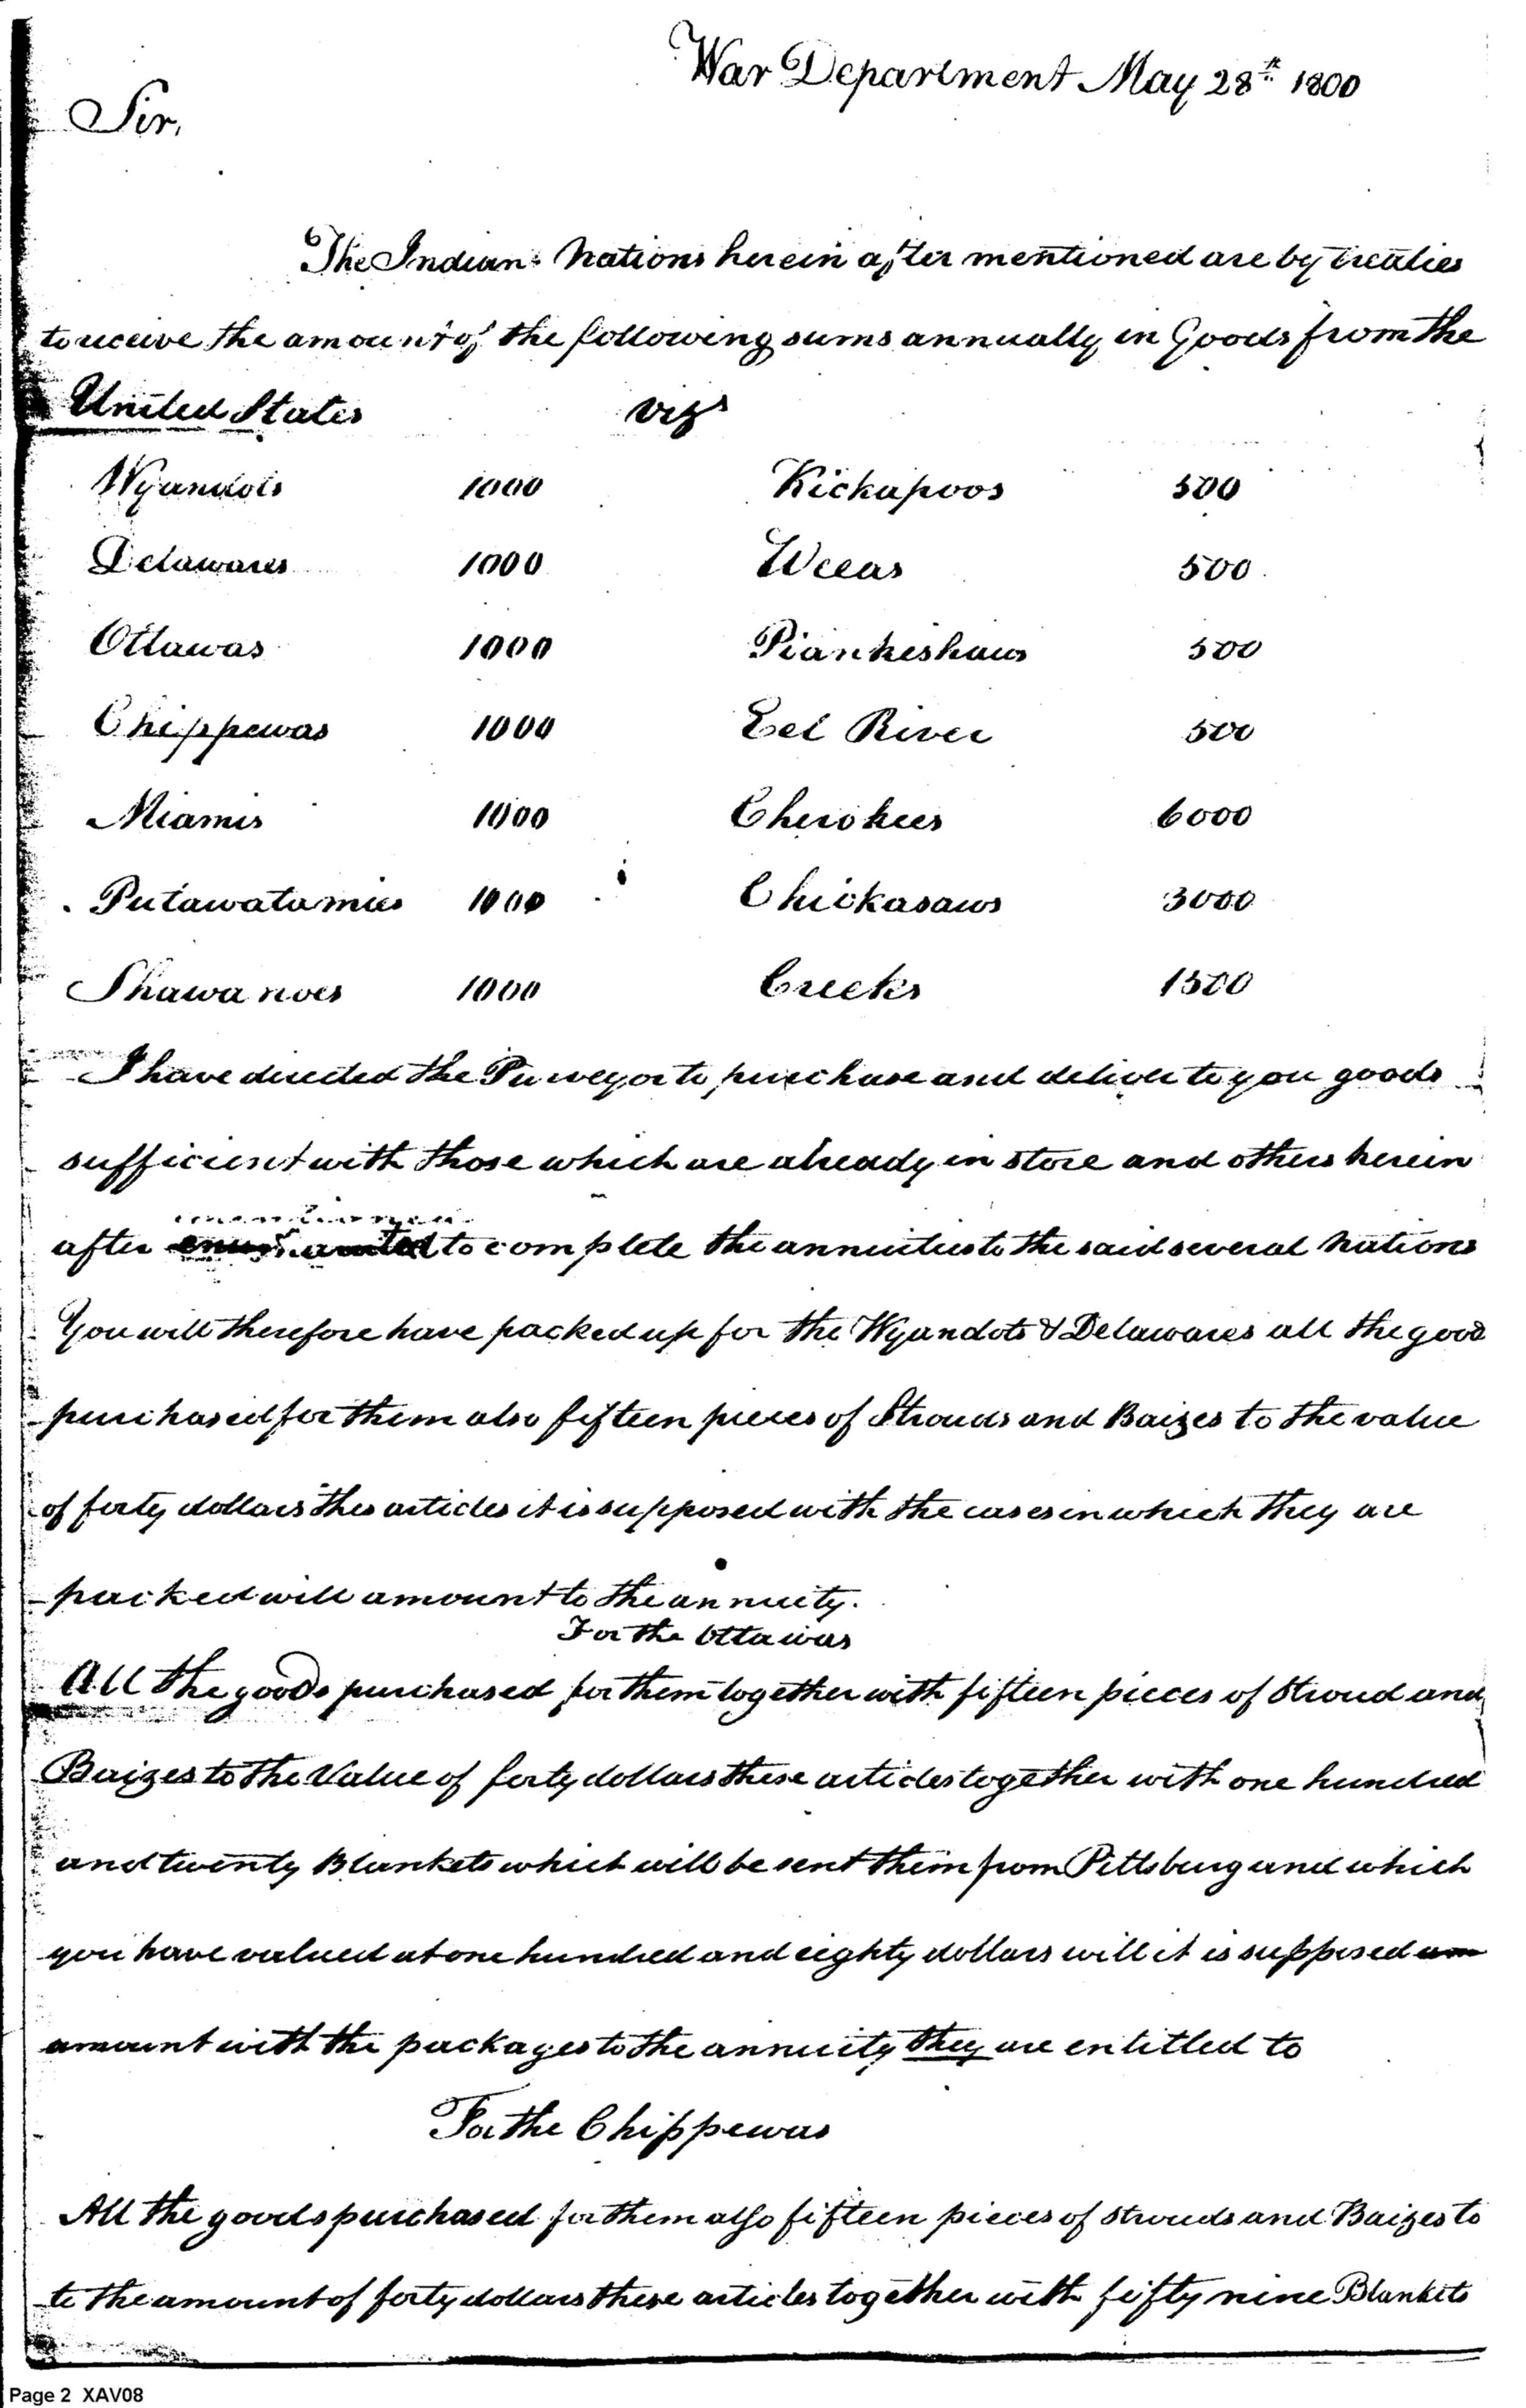 War Department May 28th 1800
Sir,
The Indian Nations herein after mentioned are by treaties
to receive the amount of the following sums annually in Goods from the
United States vizt
Wyandots 1000 Kickapoos 500
Delawares 1000 Weeas 500
Ottawas 1000 Piankeshaws 500
Chippewas 1000 Eel River 500
Miamis 1000 Cherokees 6000
Putawatamies 1000 Chickasaws 3000
Shawanoes 1000 Creeks 1500
I have directed the Purveyor to purchase and deliver to you goods
sufficient with those which are already in store and others herein
mentioned
after enumerated to complete the annuities to the said several Nations
You will therefore have packed up for the Wyandots & Delawares all the good
purchased for them also fifteen pieces of Strouds and Baizes to the value
of forty dollars this articles it is supposed with the cases in which they are
packed will amount to the annuity.
For the Ottawas
All the goods purchased for them together with fifteen pieces of Stroud and
Baizes to the Value of forty dollars these articles together with one hundred
and twenty Blankets which will be sent them from Pittsburg and which
you have valued at one hundred and eighty dollars will it is supposed am
amount with the packages to the annuity they are entitled to
For the Chippewas
All the goods purchased for them also fifteen pieces of strouds and Baizes to
to the amount of forty dollars these articles together with fifty nine Blankets
Page 2 XAV08